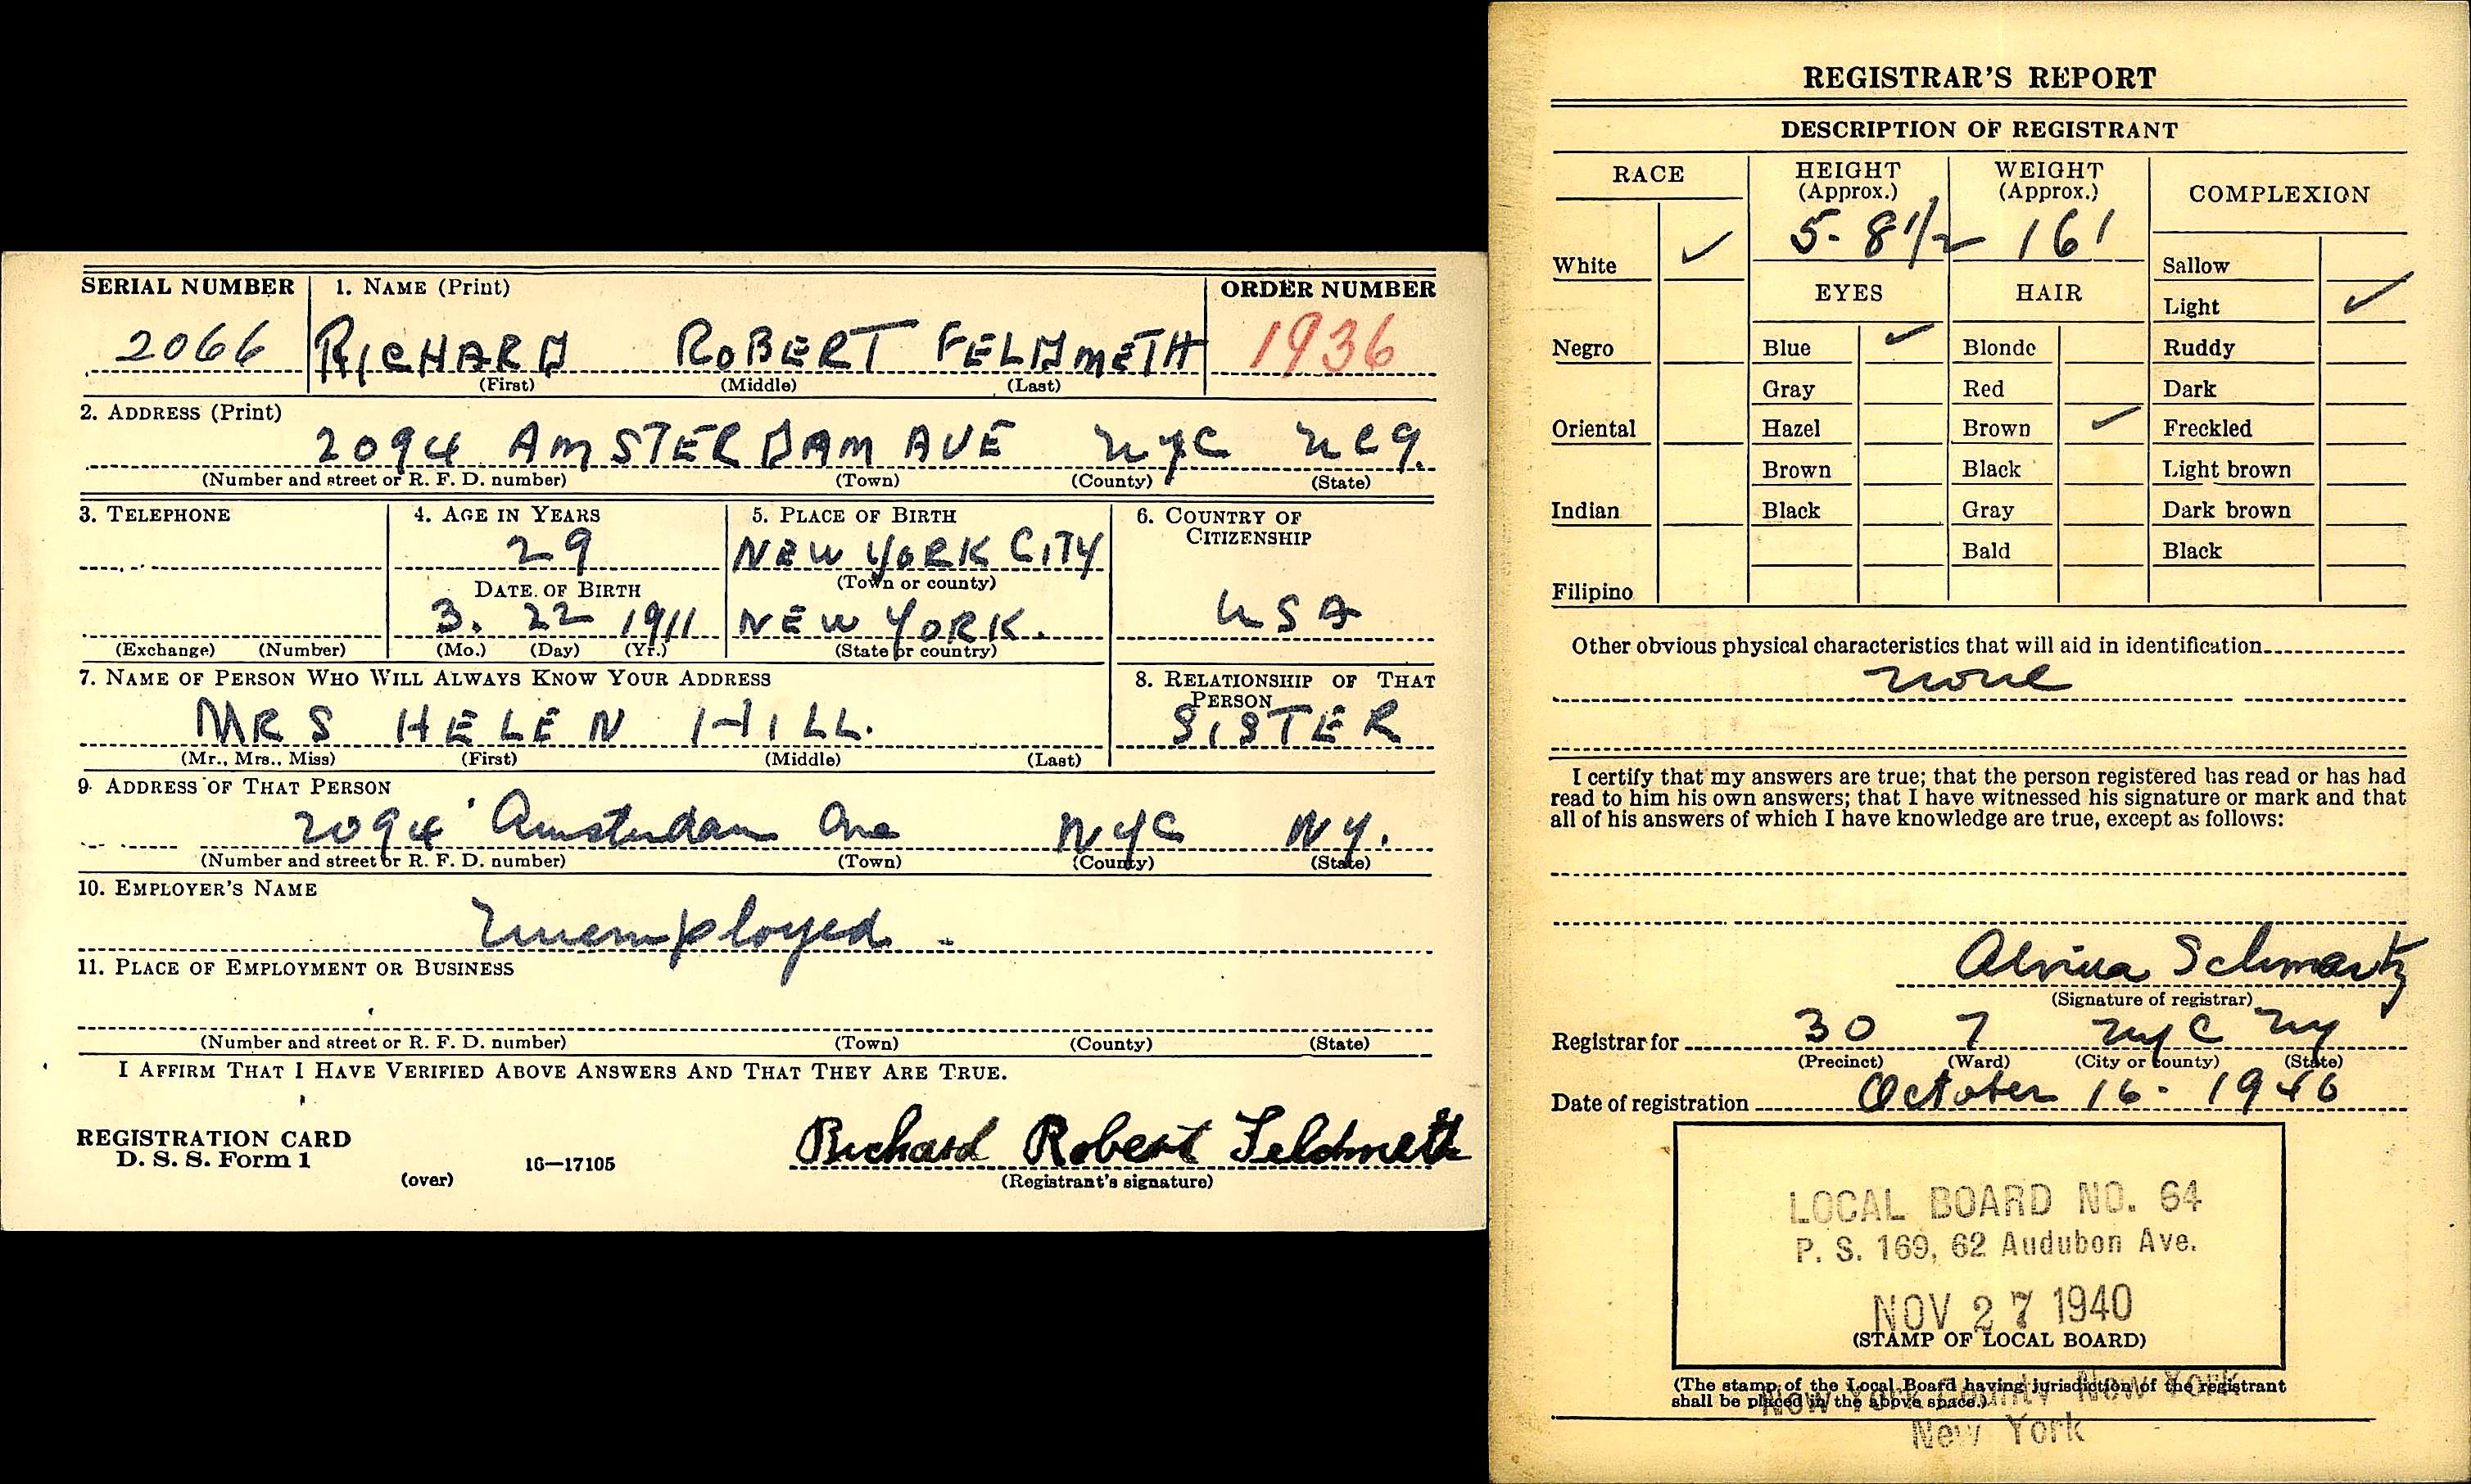 SERIAL NUMBER 1. NAME (Print) ORDER NUMBER
2066 RICHARD ROBERT FELDMETH 1936
(First) (Middle) (Last)
2. ADDRESS (Print)
2094 AMSTERDAM AVE NYC
(Number and street or R. F. D. number) (Town) (County) (State)
3. TELEPHONE 4. AGE IN YEARS 5. PLACE OF BIRTH 6. COUNTRY OF
CITIZENSHIP
29 NEW YORK CITY
DATE OF BIRTH (Town or county)
3. 22 1911 NEW YORK. USA
(Exchange) (Number) (Mo.) (Day) (Yr.) (State or country)
7. NAME OF PERSON WHO WILL ALWAYS KNOW YOUR ADDRESS 8. RELATIONSHIP OF THAT
PERSON
MRS HELEN HILL. SISTER
(Mr., Mrs., Miss) (First) (Middle) (Last)
9. ADDRESS OF THAT PERSON
2094 Amsterdam Ave NYC NY.
(Number and street or R. F. D. number) (Town) (County) (State)
10. EMPLOYER'S NAME
Unemployed
11. PLACE OF EMPLOYMENT OR BUSINESS
(Number and street or R. F. D. number) (Town) (County) (State)
I AFFIRM THAT I HAVE VERIFIED ABOVE ANSWERS AND THAT THEY ARE TRUE.
REGISTRATION CARD
D. S. S. Form 1
(over) 16—17105
Richard Robert Feldmeth
(Registrant's signature)
REGISTRAR'S REPORT
DESCRIPTION OF REGISTRANT
RACE HEIGHT (Approx.) WEIGHT (Approx.) COMPLEXION
White ✓ 5-8 1/2 161 Sallow
EYES HAIR Light ✓
Negro Blue ✓ Blonde Ruddy
Gray Red Dark
Oriental Hazel Brown ✓ Freckled
Brown Black Light brown
Indian Black Gray Dark brown
Bald Black
Filipino
Other obvious physical characteristics that will aid in identification
none
I certify that my answers are true; that the person registered has read or has had
read to him his own answers; that I have witnessed his signature or mark and that
all of his answers of which I have knowledge are true, except as follows:
Schwartz
(Signature of registrar)
Registrar for 30 7 NYC NY
(Precinct) (Ward) (City or county) (State)
Date of registration October 16- 1940
LOCAL BOARD NO. 64
P. S. 169, 62 Audubon Ave.
NOV 27 1940
(STAMP OF LOCAL BOARD)
(The stamp of the Local Board having jurisdiction of the registrant
shall be placed in the above space.)
New York County New York
New York